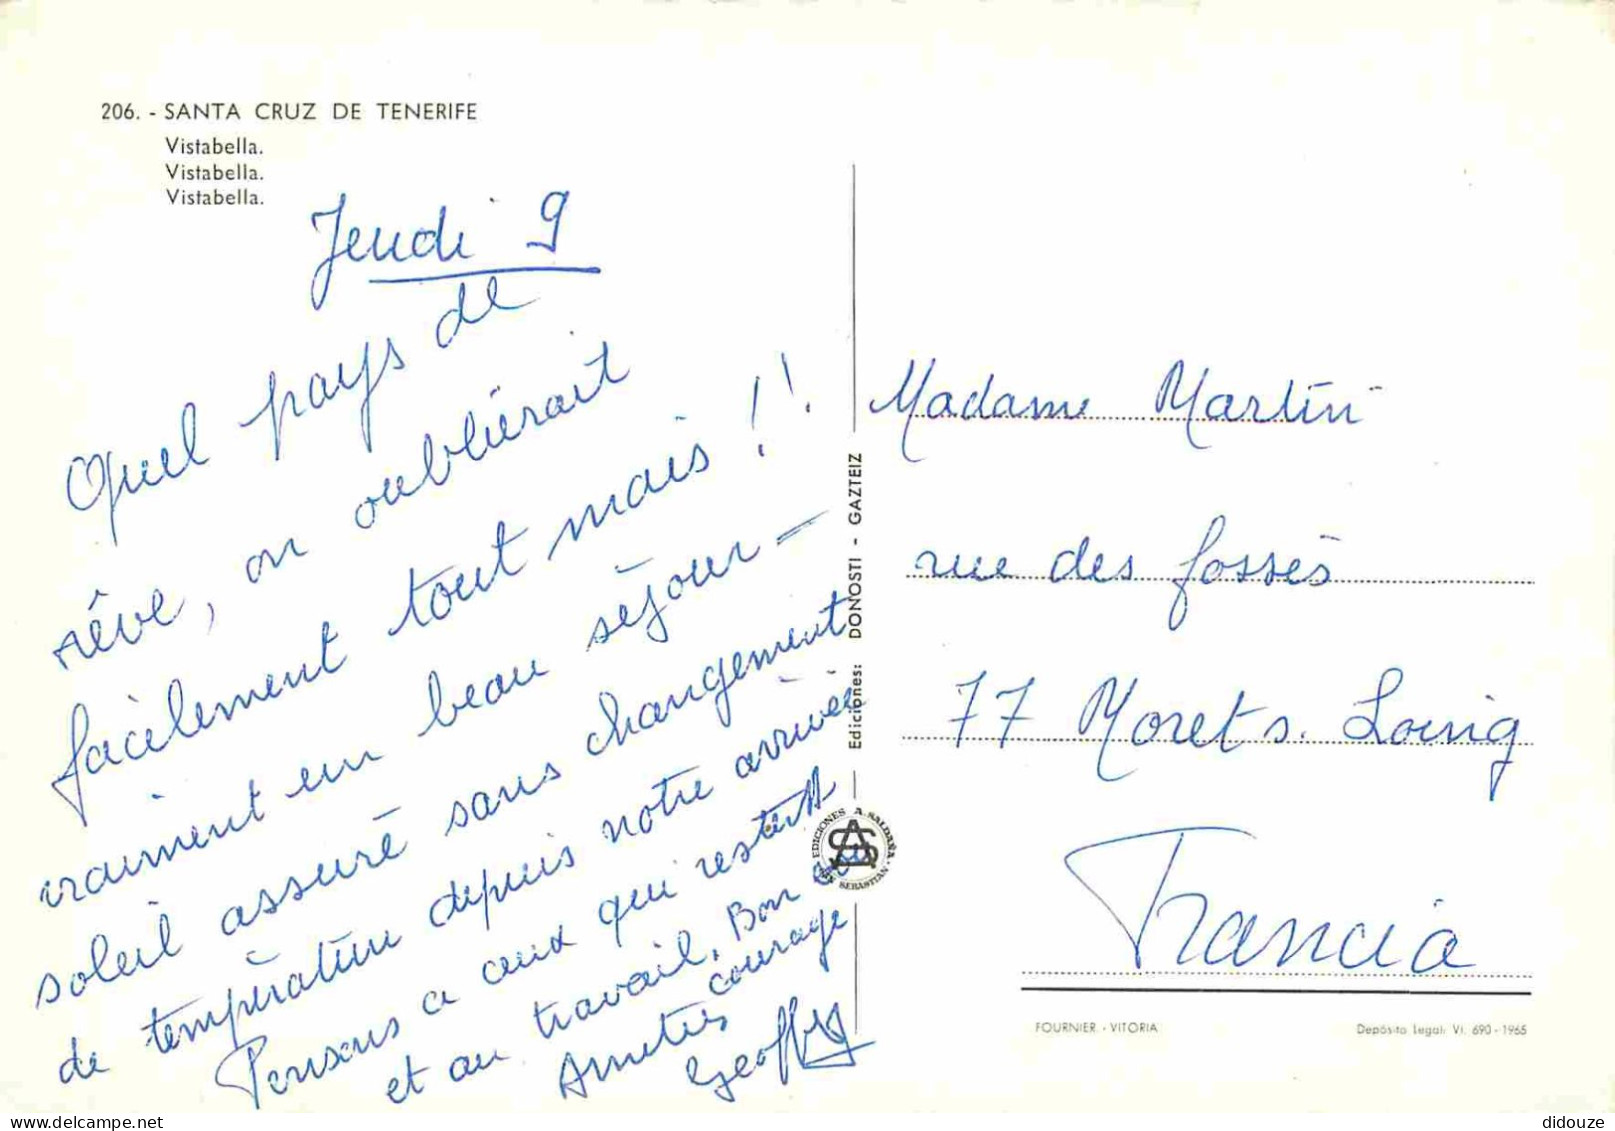 206. - SANTA CRUZ DE TENERIFE
Vistabella.
Vistabella.
Vistabella.
Jeudi 9
Quel pays de
rêve, on oublierait
facilement tout mais !!
vraiment un beau séjour -
soleil assuré sans changement
de température depuis notre arrivée
Pensons a ceux qui restent
et au travail. Bon
courage
Amitiés
Geoffroy
Ediciones: DONOSTI - GAZTEIZ
EDICIONES A. SALDAÑA - SAN SEBASTIAN -
Madame Martin
rue des fossés
77 Moret s. Loing
Francia
FOURNIER - VITORIA
Depósito Legal: VI. 690 - 1965
didouze